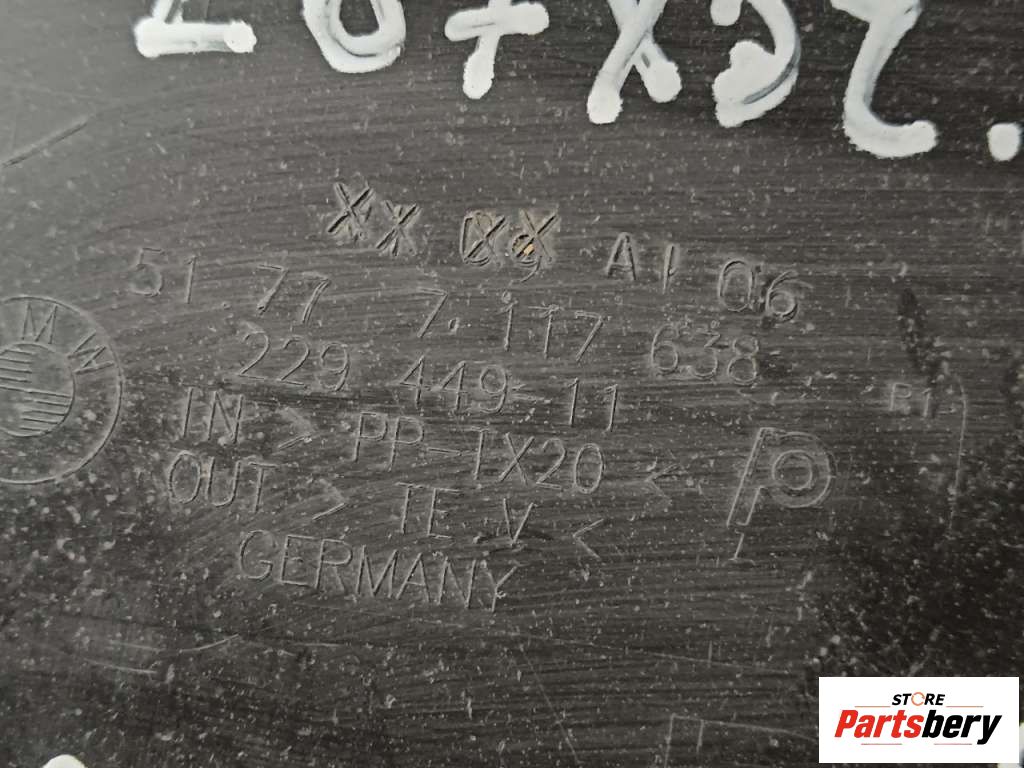 AI 06
51.77 7.117 638
229 449-11
IN > PP-TX20 <
OUT > TE.V <
GERMANY
BMW
P1
STORE
Partsbery